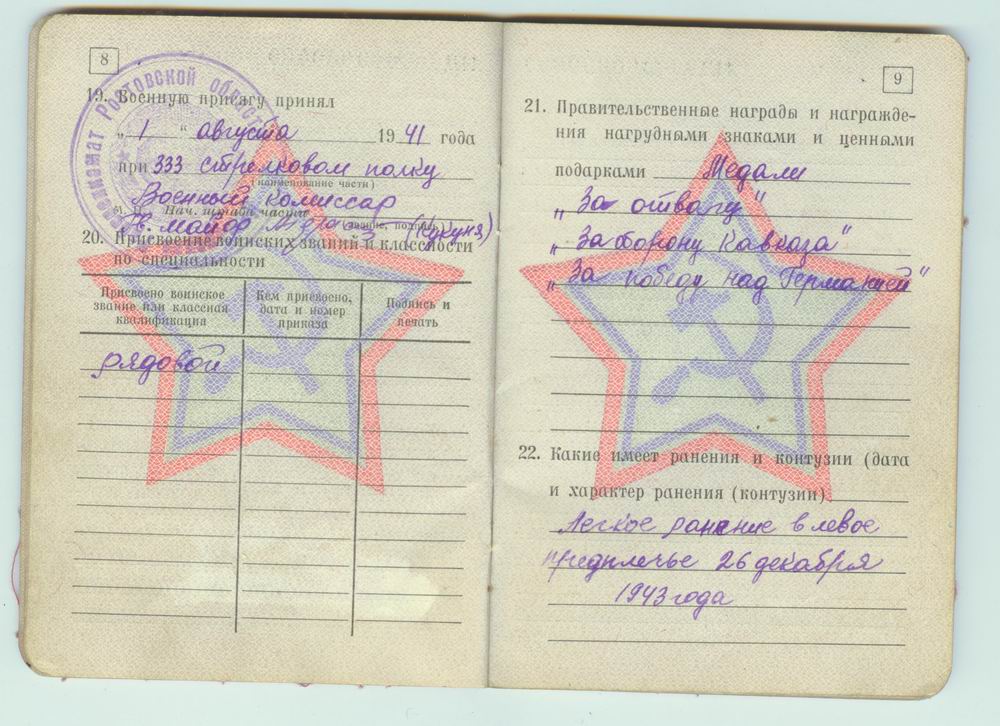 8
19. Военную присягу принял
„ 1 “ августа 1941 года
при 333 стрелковом полку
(наименование части)
Военный комиссар
Нач. штаба части
майор (Кукуня)
20. Присвоение воинских званий и классности
по специальности
Присвоено воинское звание или классная квалификация
Кем присвоено, дата и номер приказа
Подпись и печать
рядовой
Ростовской област
9
21. Правительственные награды и награжде-
ния нагрудными знаками и ценными
подарками Медали
„За отвагу"
„За оборону Кавказа"
„За победу над Германией"
22. Какие имеет ранения и контузии (дата
и характер ранения (контузии)
Легкое ранение в левое
предплечье 26 декабря
1943 года